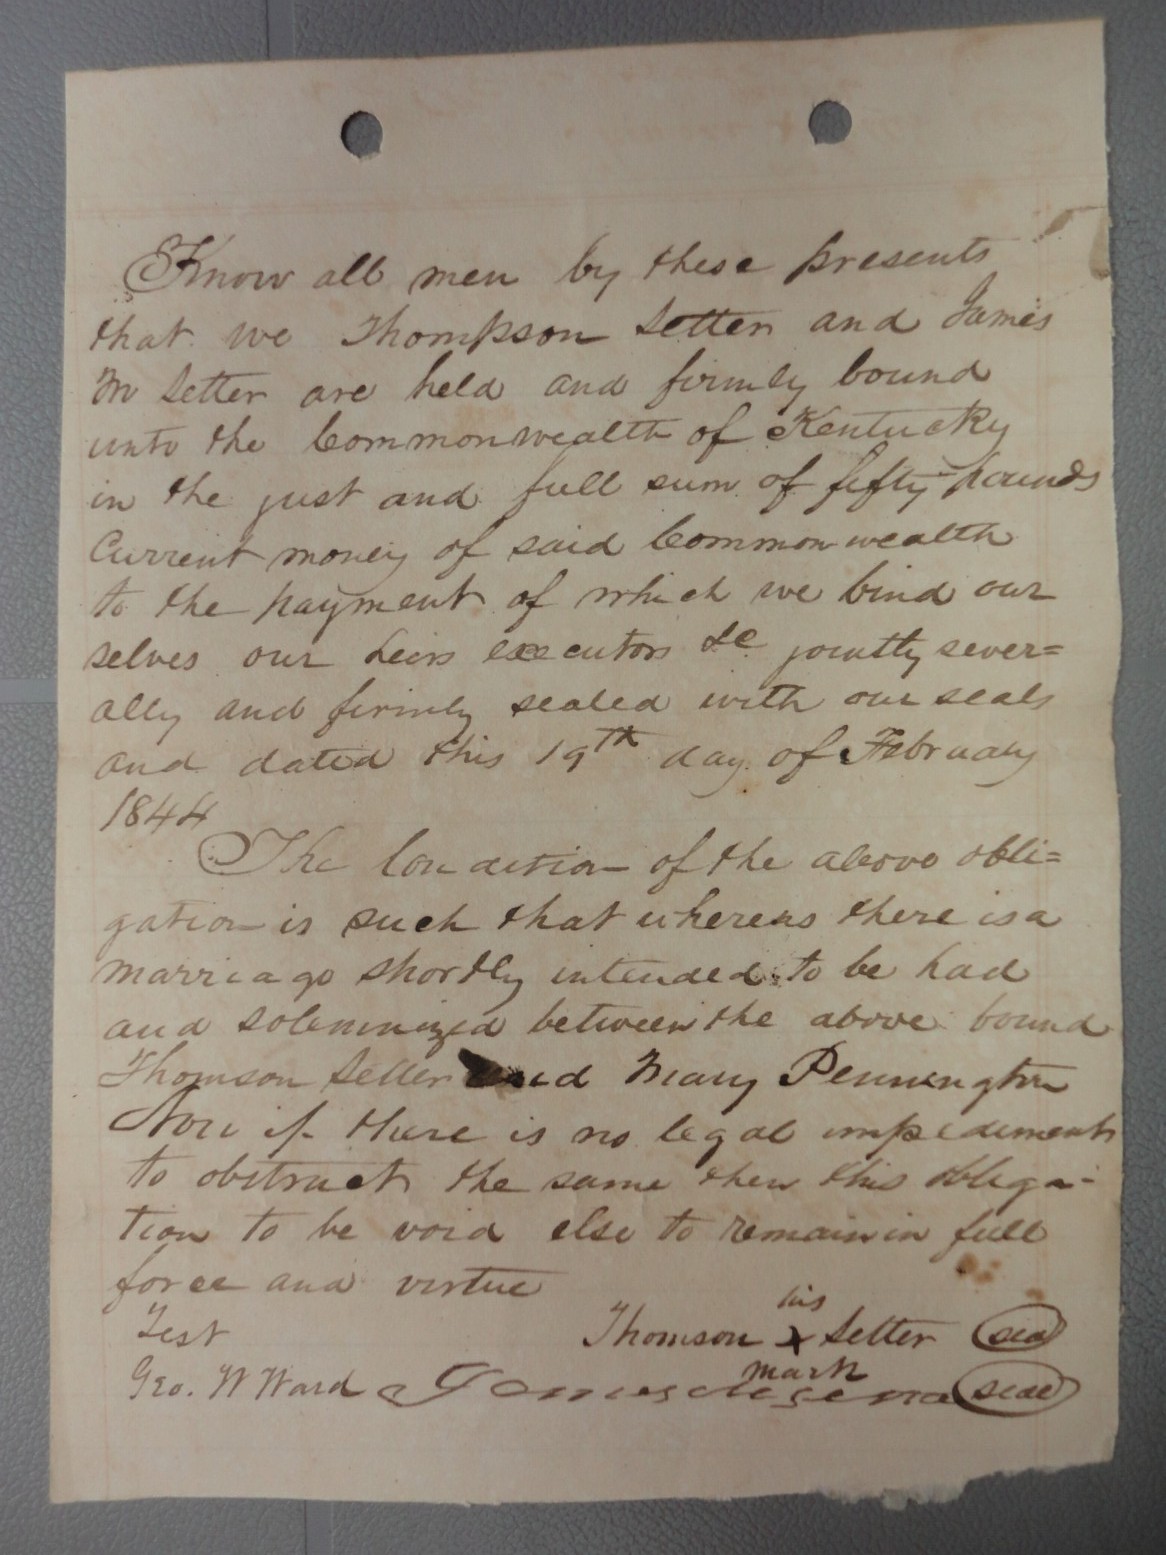 Know all men by these presents
that we Thompson Setter and James
M Setter are held and firmly bound
unto the Commonwealth of Kentucky
in the just and full sum of fifty pounds
Current money of said Commonwealth
to the payment of which we bind our
selves our heirs executors &c jointly sever=
ally and firmly sealed with our seals
and dated this 19th day of February
1844
The Condition of the above obli=
gation is such that whereas there is a
marriage shortly intended to be had
and solemnized between the above bound
Thomson Setter and Mary Pennington
Now if there is no legal impediments
to obstruct the same then this obliga-
tion to be void else to remain in full
force and virtue
Test Thomson his X mark Setter seal
Geo. W Ward James seal